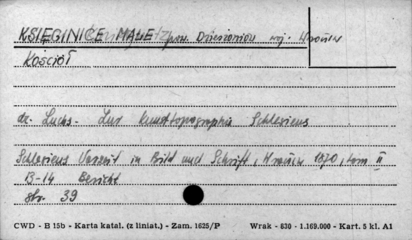 KSIĘGINICE MAŁE pow. Dzierżoniów woj. Wrocław
KOŚCIÓŁ
dr. Luchs - Zur Kunsttopographie Schlesiens
Schlesiens Vorzeit in Bild und Schrift, Wrocław 1870, tom II
13-14 Bericht
str. 39
CWD - B 15b - Karta katal. (z liniat.) - Zam. 1625/P Wrak - 630 - 1.169.000 - Kart. 5 kl. A1